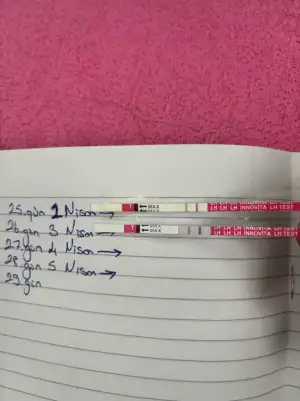 25.gün 1 Nisan → MAX LH LH LH INNOVITA LH TEST
26.gün 3 Nisan → MAX LH LH LH INNOVITA LH TEST
27.gün 4 Nisan →
28.gün 5 Nisan →
29.gün